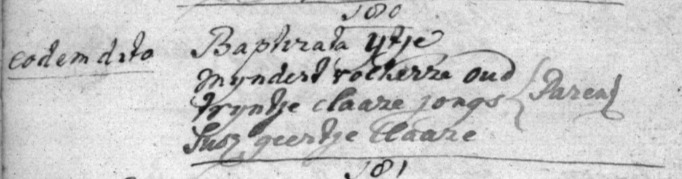 180
eodem dito Baptizata ytje
Myndert rockerze oud
tryntje claaze jongs } Parens
Susz geertje Claaze
181